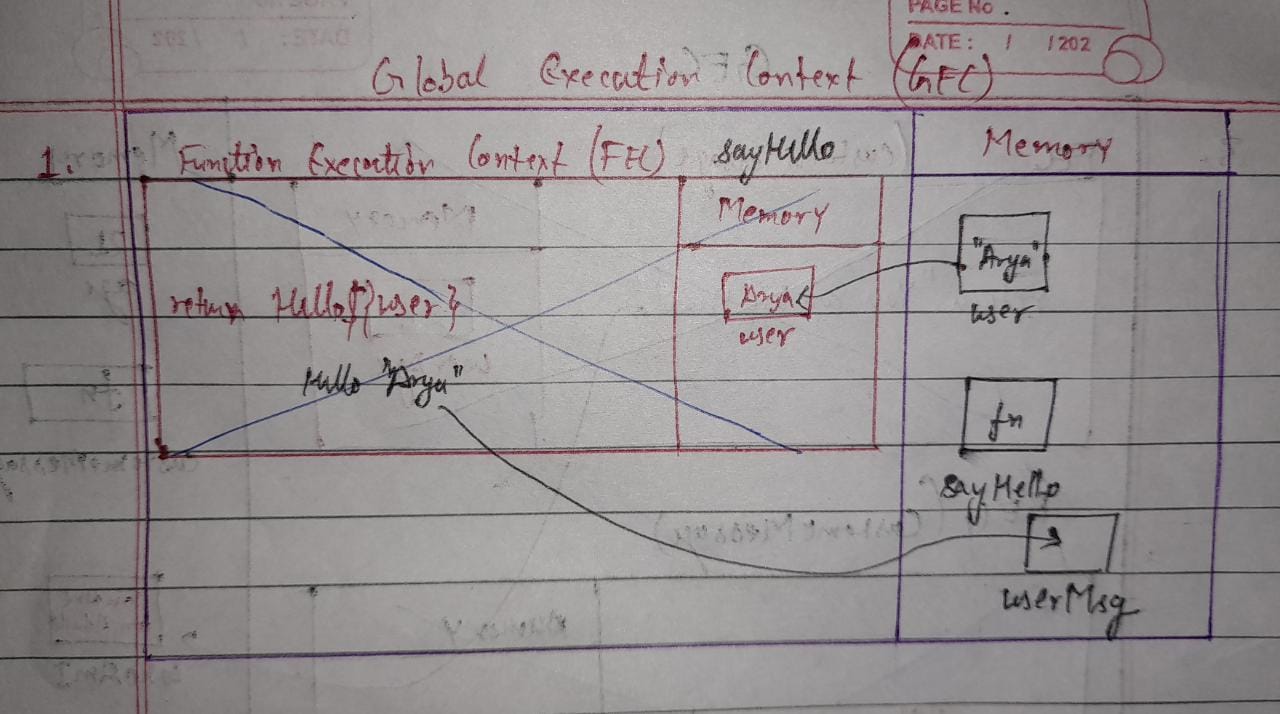 PAGE No .
DATE: / /202
Global Execution Context (GEC)
1. Function Execution Context (FEC) sayHello
Memory
Memory
"Arya"
user
return Hello${user}
Arya
user
Hello "Arya"
fn
sayHello
userMsg